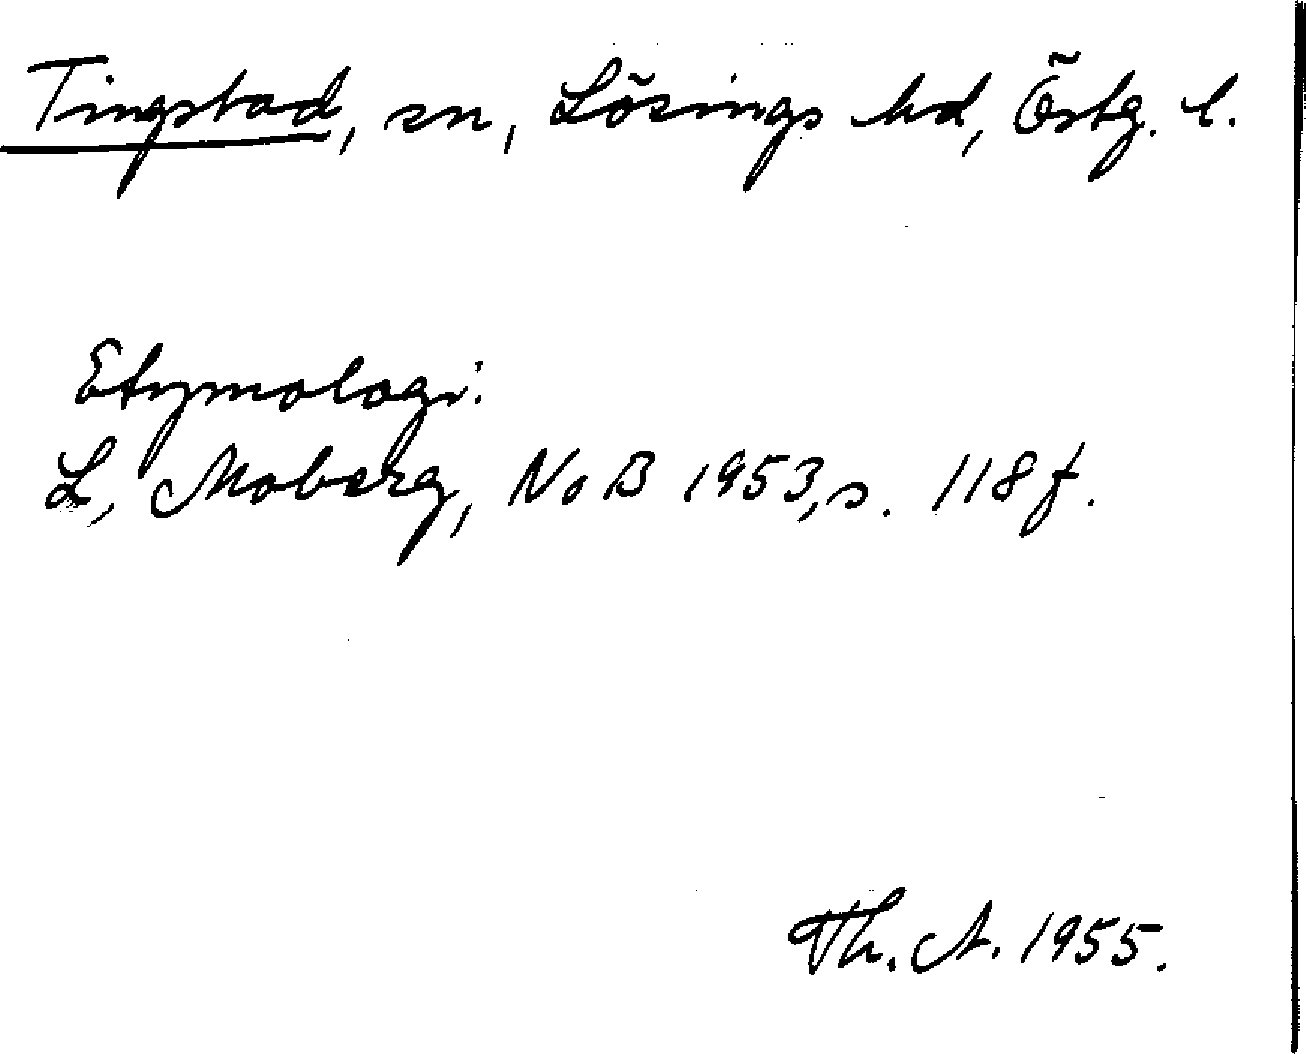 Tingstad, sn, Lösings hd, Östg. l.
Etymologi:
L, Moberg, NoB 1953, s. 118 f.
Th. A. 1955.